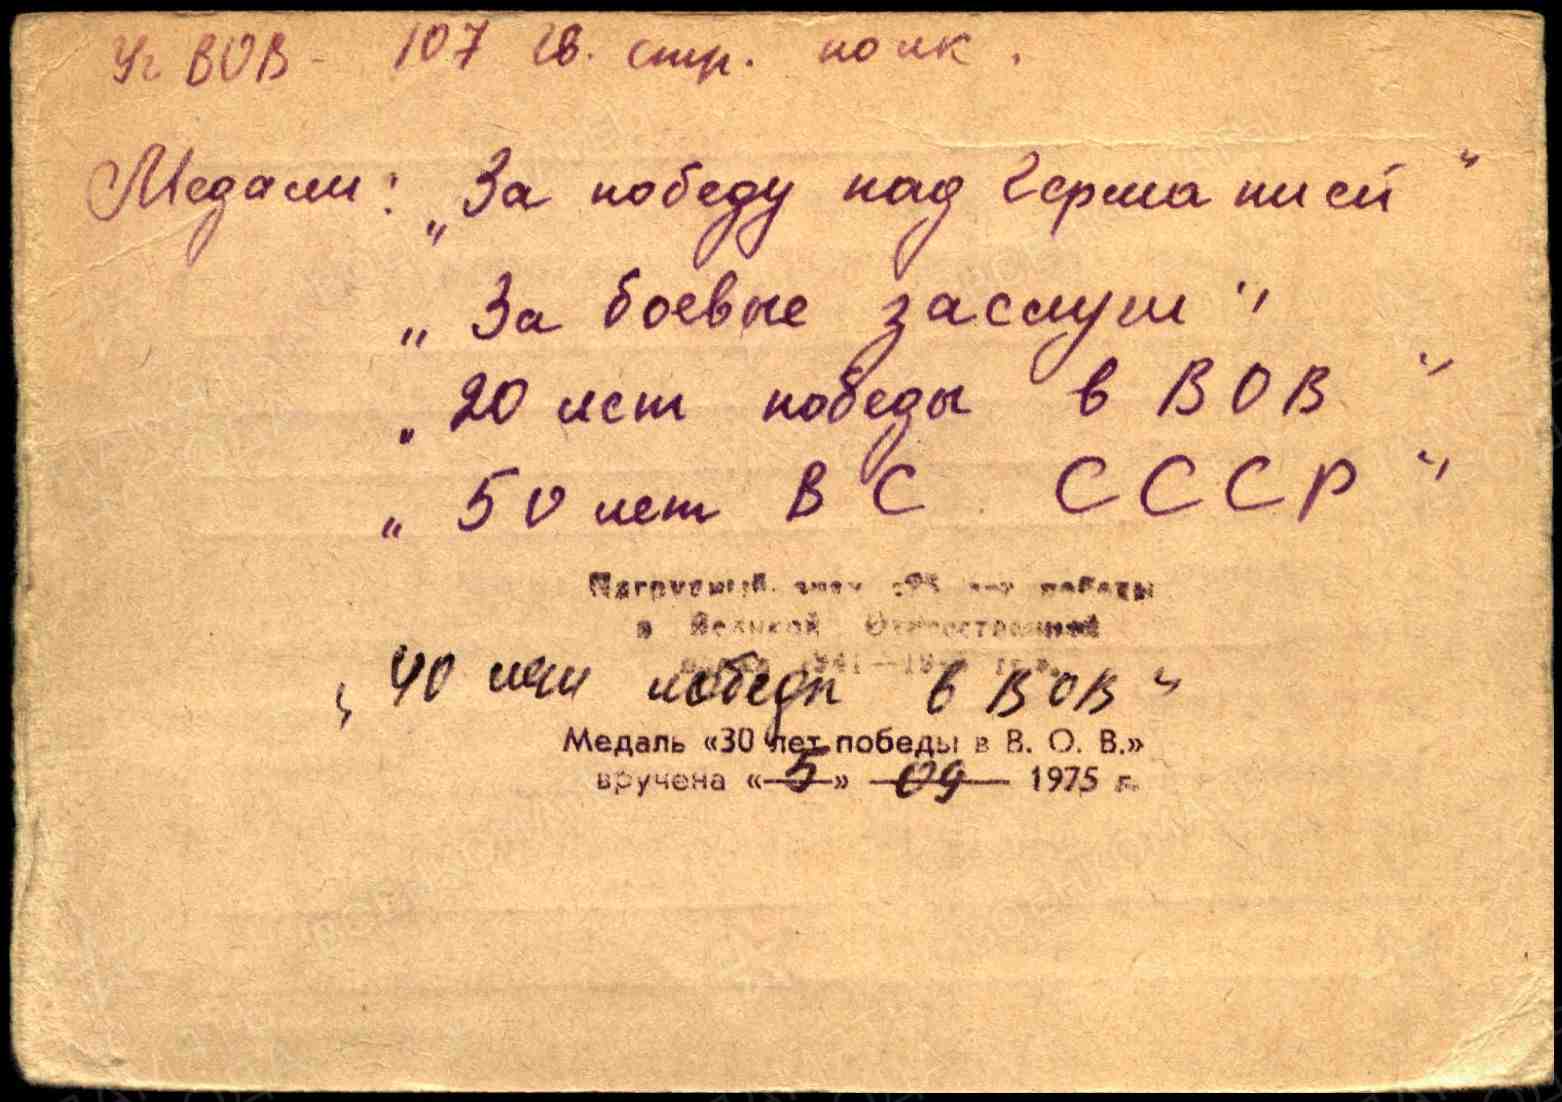 Уч ВОВ - 107 гв. стр. полк.
Медали: „За победу над Германией"
„За боевые заслуги"
„20 лет победы в ВОВ"
„50 лет ВС СССР"
Нагрудный знак «25 лет победы
в Великой Отечественной
войне 1941—1945 гг.»
„40 лет победы в ВОВ"
Медаль «30 лет победы в В. О. В.»
вручена «5» 09 1975 г.